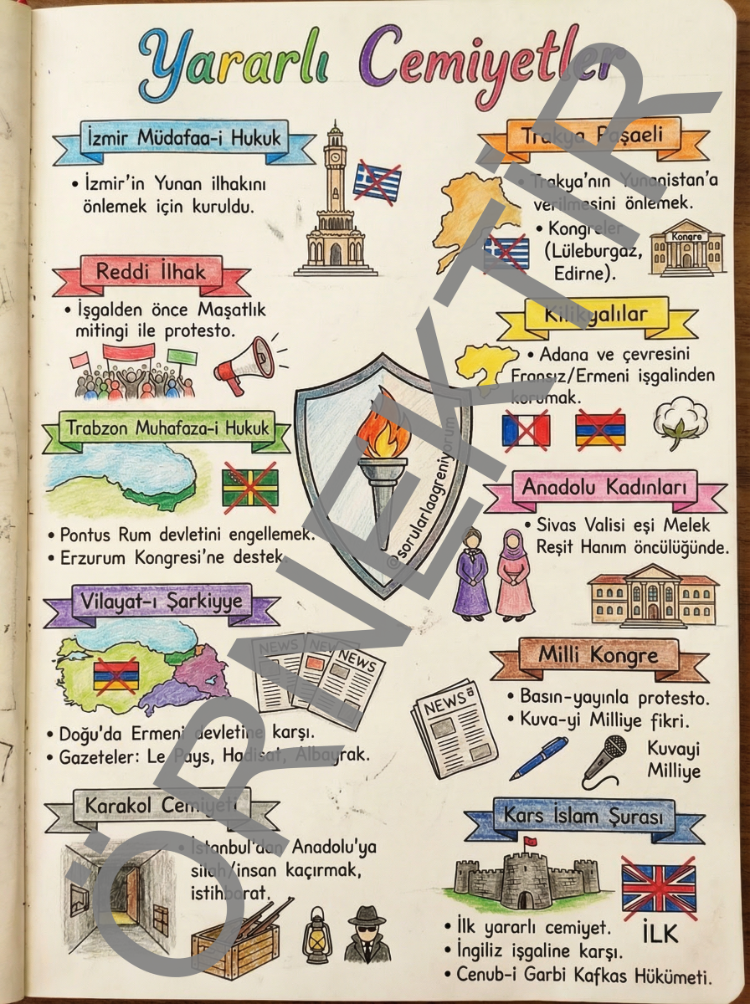 Yararlı Cemiyetler
İzmir Müdafaa-i Hukuk
• İzmir'in Yunan ilhakını
önlemek için kuruldu.
Reddi İlhak
• İşgalden önce Maşatlık
mitingi ile protesto.
Trabzon Muhafaza-i Hukuk
• Pontus Rum devletini engellemek.
• Erzurum Kongresi'ne destek
Vilayat-ı Şarkiyye
NEWS
NEWS
NEWS
• Doğu'da Ermeni devletine karşı.
• Gazeteler: Le Pays, Hadisat, Albayrak.
Karakol Cemiyeti
• İstanbul'dan Anadolu'ya
silah/insan kaçırmak,
istihbarat.
@sorularlaogreniyorum
ÖRNEKTİR
Trakya Paşaeli
• Trakya'nın Yunanistan'a
verilmesini önlemek.
• Kongreler
(Lüleburgaz,
Edirne).
Kongre
Kilikyalılar
• Adana ve çevresini
Fransız/Ermeni işgalinden
korumak.
Anadolu Kadınları
• Sivas Valisi eşi Melek
Reşit Hanım öncülüğünde.
Milli Kongre
• Basın-yayınla protesto.
• Kuva-yi Milliye fikri.
NEWS
Kuvayi
Milliye
Kars İslam Şurası
İLK
• İlk yararlı cemiyet.
• İngiliz işgaline karşı.
• Cenub-i Garbi Kafkas Hükümeti.